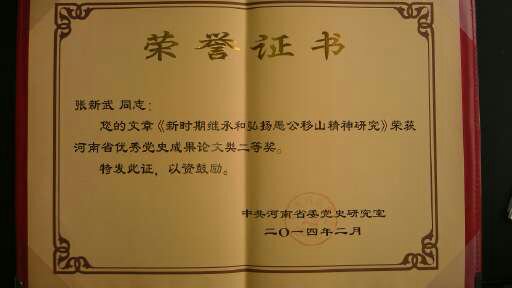 荣誉证书
张新武 同志：
您的文章《新时期继承和弘扬愚公移山精神研究》荣获
河南省优秀党史成果论文类二等奖。
特发此证，以资鼓励。
中共河南省委党史研究室
二〇一四年二月